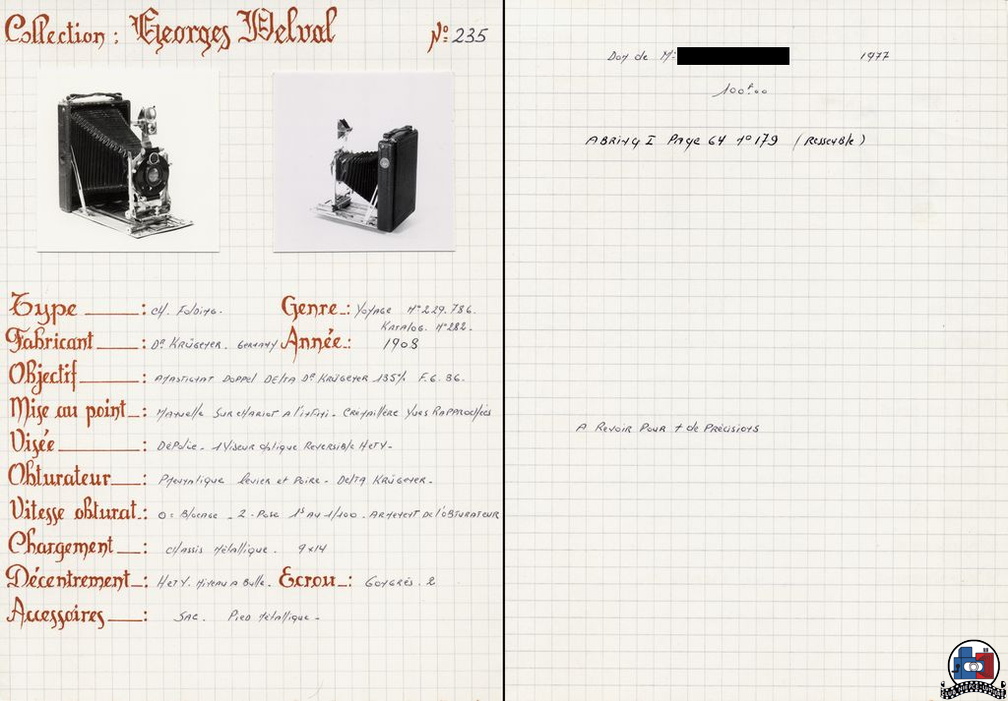 Collection : Georges Delval
N° 235
Type : ch. Folding.
Genre : Voyage N° 229.786.
Katalog. N° 282.
Fabricant : Dr KRÜGENER. GERMANY
Année : 1908
Objectif : ANASTIGMAT DOPPEL DELTA Dr KRÜGENER 135% F.6.86.
Mise au point : MANuelle Sur CHARIOT A l'iNFiNi. CREMAillÈRE Vues RAPPROCHÉES
Visée : DéPolie. 1 Viseur Oblique Reversible H et V.
Obturateur : PNeuMAtique levier et Poire. DELTA KRÜGENER.
Vitesse obturat. : O = Blocage _ 2 - Pose 1s AU 1/100. ARMEMENT De l'OBTURATEUR
Chargement : Chassis Métallique. 9x14
Décentrement : H et V. Niveau A Bulle.
Ecrou : CONGRÈS. 2
Accessoires : SAC. Pied Métallique.
Don de Mr
1977
100F00
ABRING I PAGE 64 N° 179 (Ressemble)
A Revoir Pour + de PRÉCISIONS